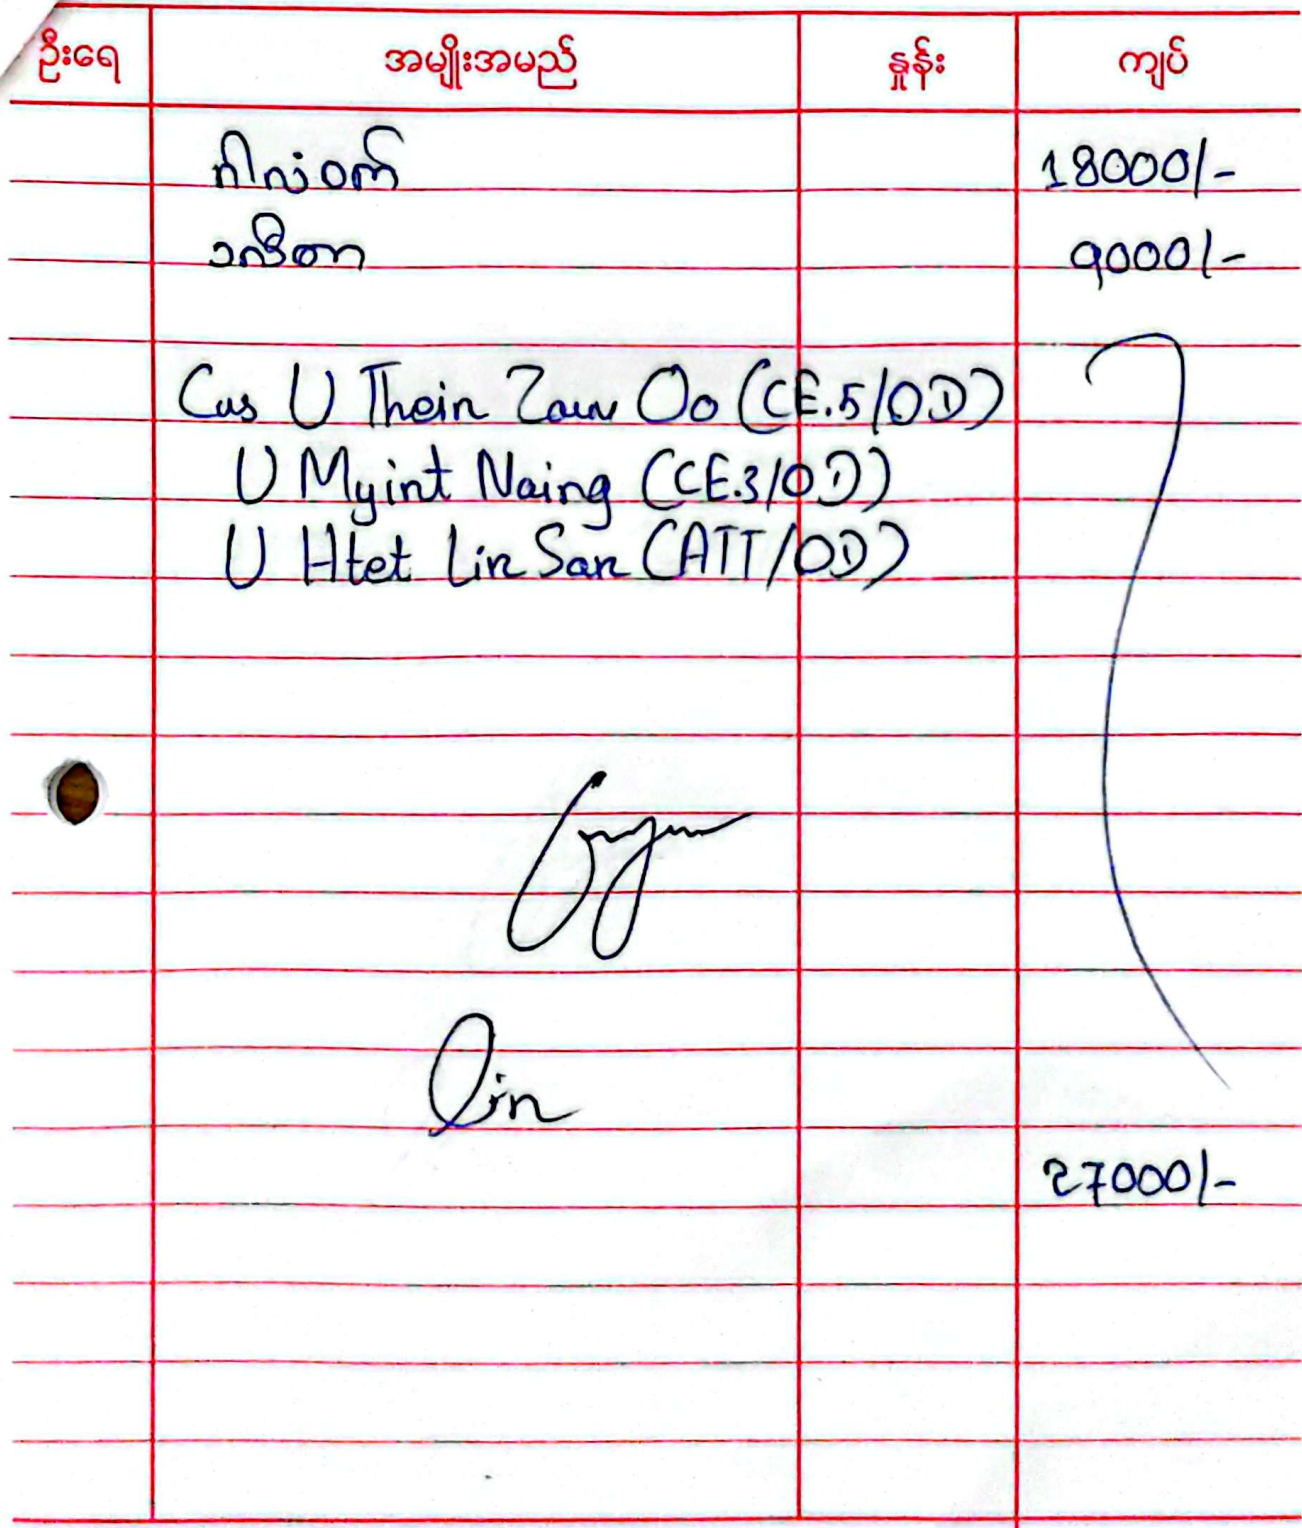 ဦးရေ အမျိုးအမည် နှုန်း ကျပ်
ဂါလံဝက် 18000/-
၁လီတာ 9000/-
Cus U Thein Zaw Oo (CE.5/OD)
U Myint Naing (CE.3/OD)
U Htet Lin San (ATT/OD)
Lin
27000/-